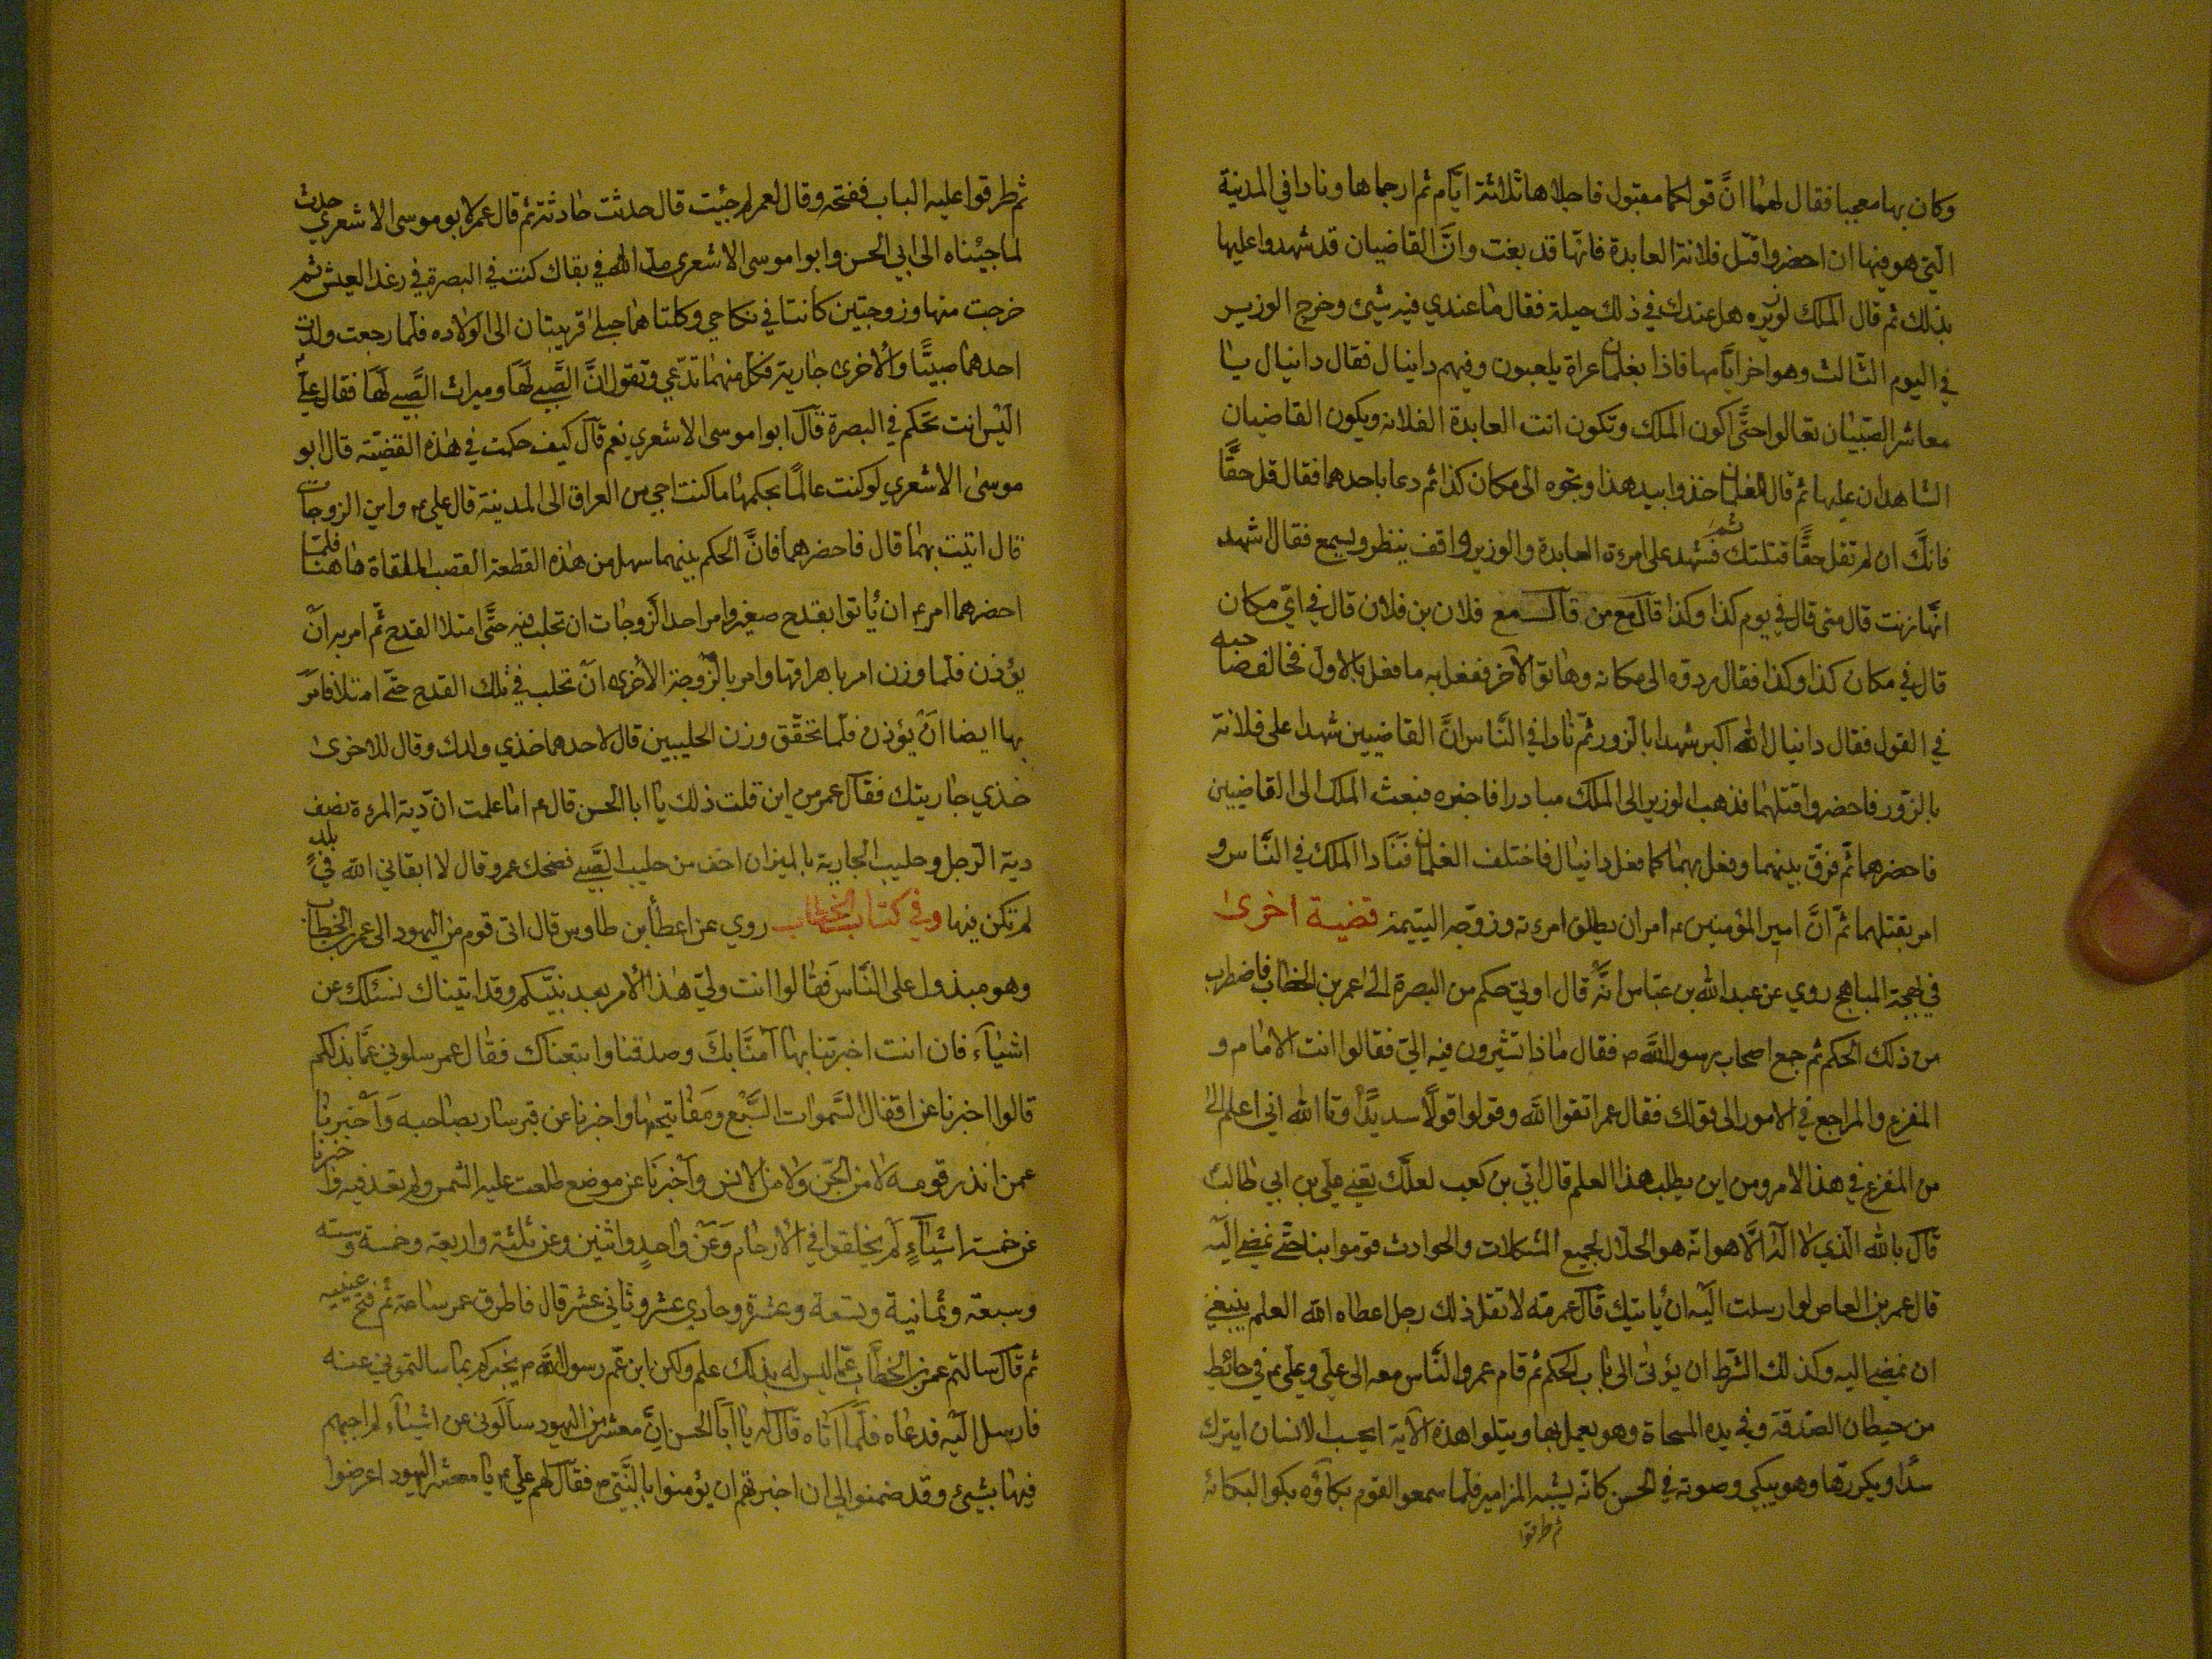 وكان بها معجبا فقال لهما انَّ قولكما مقبول فاجلاها ثلاثة ايّام ثم ارجماها ونادا في المدينة
الّتي هو فيها ان احضروا قتل فلانة العابدة فانّها قد بغت وانَّ القاضيان قد شهدوا عليها
بذلك ثم قال الملك لوزيره هل عندك في ذلك حيلة فقال ما عندي فيه شيئ وخرج الوزير
في اليوم الثّالث وهو اخر ايّامها فاذا بغلمان عراة يلعبون وفيهم دانيال فقال دانيال يا
معاشر الصّبيان تعالوا حتَّى اكون الملك وتكون انت العابدة الفلانه ويكون القاضيان
الشاهدان عليها ثم قال للغلمان خذوا بيد هذا ونحوه الى مكان كذا ثم دعا باحدهما فقال قل حقًّا
فانّك ان لم تقل حقًّا قتلتك ثم فشهد على امرءة العابدة والوزير واقف ينظر ويسمع فقال اشهد
انّها زنت قال متى قال في يوم كذا وكذا قال مع من قال مع فلان بن فلان قال في ايّ مكان
قال في مكان كذا وكذا فقال ردوّه الى مكانه وهاتوّ الآخر ففعل به ما فعل بالاول فخالف صاحبه
في القول فقال دانيال الله اكبر شهدا بالزور ثمّ نادا في النَّاس انَّ القاضيين شهدا على فلانة
بالزّور فاحضروا قتلهما فذهب الوزير الى الملك مبادرا فاخبره فبعث الملك الى القاضيين
فاحضرهما ثمّ فرّق بينهما وفعل بهما كما فعل دانيال فاختلف الغلمان فنادا الملك في النَّاس و
امر بقتلهما ثمّ انَّ امير المؤمنين ع امر ان يطلق امرءته وزوّجه اليتيمة قضية اخرى
في بهجة المباهج روي عن عبد الله بن عبّاس انَّه قال اوتي حكم من البصرة الى عمر بن الخطّاب فاضطرب
من ذلك الحكم ثم جمع اصحاب رسول اللّه ص فقال ماذا تشيرون فيه اليّ فقالوا انت الامام و
المفزع والمراجع في الامور الى قولك فقال عمر اتقوا اللّه وقولوا قولًا سديدًا وقا الله اني اعلم الى
من المفزع في هذا الامر ومن اين يطلب هذا العلم قال ابّي بن كعب لعلّك يعني علّي بن ابي طالب
قال بالله الّذي لا اله الَّا هو انّه هو الحلّال لجميع المشكلات والحوادث قوموا بنا حتّى نمضي اليه
قال عمر بن العاص لو ارسلت اليه ان يأتيك قال عمر مه لا تقل ذلك رجل اعطاه الله العلم ينبغي
ان نمضي اليه وكذلك الشّرط ان يؤتى الى باب الحكم ثم قام عمر والنَّاس معه الى علّي وعلّي ع في حائط
من حيطان الصّدقة وفي يده المسحاة وهو يعمل بها ويتلوا هذه الآية ايحسب الانسان ايترك
سدًا ويكررها وهو يبكي وصوته في الحسن كانّه يشبه المزامير فلّما سمعوا القوم بكاؤه بكوا لبكائه
ثم طرقوا
ثم طرقوا عليه الباب ففتحه وقال لعمر لم جئت قال حدثت حادثة ثم قال عمر لابو موسى الاشعري حدث
لما جيناه الى ابي الحسن وابوا موسى الاشعري في بقاك كنت في البصرة في رغد العيش ثم
خرجت منها وزوجتين كانتا في نكاحي وكلتا هما حبلى قريبتان الى الولاده فلّما رجعت ولدت
احدهما صبيًّا والأخرى جارية فكل منهما تدّعي وتقول انَّ الصَّبي لها وميراث الصَّبي لها فقال علّي ع
اليس انت تحكم في البصرة قال ابوا موسى الاشعري نعم قال كيف حكمت في هذه القضيّة قال ابو
موسى الاشعري لو كنت عالمًا بحكمها ما كنت اجي من العراق الى المدينة قال علي ع واين الزوجات
قال اتيت بهما قال فاحضرهما فانَّ الحكم بينهما سهل من هذه القطعة القصب الملقاة هاهنا فلمّا
احضرهما امر ع ان يأتوا بقدح صغير وامر احد الزوجات ان تحلب فيه حتَّى امتلا القدح ثمّ امر به ان
يؤذن فلّما وزن امر باهراقها وامر بالزّوجة الأخرى ان تحلب في تلك القدح حتّى امتلا فامر
بها ايضا ان يؤذن فلّما تحقّق وزن الحليبين قال لاحدهما خذي ولدك وقال للاخرى
خذي جاريتك فقال عمر من اين قلت ذلك يا ابا الحسن قال ع اما علمت انّ دية المرءة نصف
دية الرّجل وحليب الجارية بالميزان اخف من حليب الصَّبي فضحك عمر وقال لا ابقاني الله في بلدٍ
لم تكن فيها وفي كتاب الخطاب روي عن اعطأ بن طاوس قال اتى قوم من اليهود الى عمر بن الخطاب
وهو مبذول على النَّاس فقالوا انت وليّ هذا الأمر بعد نبيّكم وقد اتيناك نسئلك عن
اشياء فان انت اخبرتنا بها آمنَّا بك وصدقنا واتبعناك فقال عمر سلوني عمَّا بذلكم
قالوا اخبرنا عن اقفال السَّموات السَّبع ومفاتيحها واخبرنا عن قبر سار بصاحبه واخبرنا
عمن انذر قومه لا من الجّن ولا من الانس واخبرنا عن موضع طلعت عليه الشمس ولم تعد فيه واخبرنا
عن خمسة اشياء لم يخلقوا في الأرحام وعن واحدٍ واثنين وعن ثلثة واربعة وخمسة وسته
وسبعة وثمانية وتسعة وعشرة وحادي عشر وثاني عشر قال فاطرق عمر ساعة ثم فتح عينيه
ثم قال سالتم عمر بن الخطَّاب عمّا ليس له بذلك علم ولكن ابن عّم رسول اللّه ص يخبركم بما سالتموني عنه
فارسل اليه فدعاه فلَّما اتاه قال له يا ابا الحسن انَّ معشر من اليهود سالوني عن اشياء لم اجبهم
فيها بشيئ وقد ضمنوا لي ان اخبرتهم ان يؤمنوا بالنَّبيّ ص فقال لهم علي ع يا معشر اليهود اعرضوا